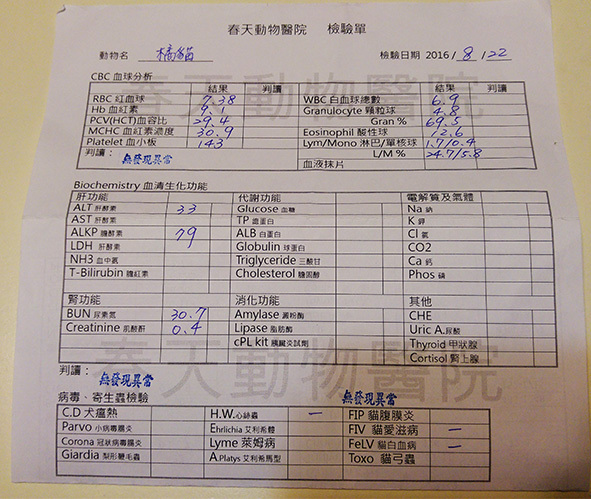 春天動物醫院 檢驗單
動物名 橘貓 檢驗日期 2016/8/22
CBC 血球分析
結果 判讀 結果 判讀
RBC 紅血球 7.38 WBC 白血球總數 6.9
Hb 血紅素 9.1 Granulocyte 顆粒球 4.8
PCV(HCT)血容比 29.4 Gran % 69.5
MCHC 血紅素濃度 30.9 Eosinophil 酸性球 12.6
Platelet 血小板 143 Lym/Mono 淋巴/單核球 1.7/0.4
判讀: 無發現異常 L/M % 24.7/5.8
血液抹片
Biochemistry 血清生化功能
肝功能 代謝功能 電解質及氣體
ALT 肝酵素 33 Glucose 血糖 Na 鈉
AST 肝酵素 TP 總蛋白 K 鉀
ALKP 膽酵素 79 ALB 白蛋白 Cl 氯
LDH 肝酵素 Globulin 球蛋白 CO2
NH3 血中氨 Triglyceride 三酸甘 Ca 鈣
T-Bilirubin 膽紅素 Cholesterol 膽固醇 Phos 磷
腎功能 消化功能 其他
BUN 尿素氮 30.7 Amylase 澱粉酶 CHE
Creatinine 肌酸酐 0.4 Lipase 脂肪酶 Uric A.尿酸
cPL kit 胰臟炎試劑 Thyroid 甲狀腺
Cortisol 腎上腺
判讀: 無發現異常
病毒、寄生蟲檢驗 無發現異常
C.D 犬瘟熱 H.W.心絲蟲 — FIP 貓腹膜炎
Parvo 小病毒腸炎 Ehrlichia 艾利希體 FIV 貓愛滋病 —
Corona 冠狀病毒腸炎 Lyme 萊姆病 FeLV 貓白血病 —
Giardia 梨形鞭毛蟲 A.Platys 艾利希馬型 Toxo 貓弓蟲
春天動物醫院
春天動物醫院